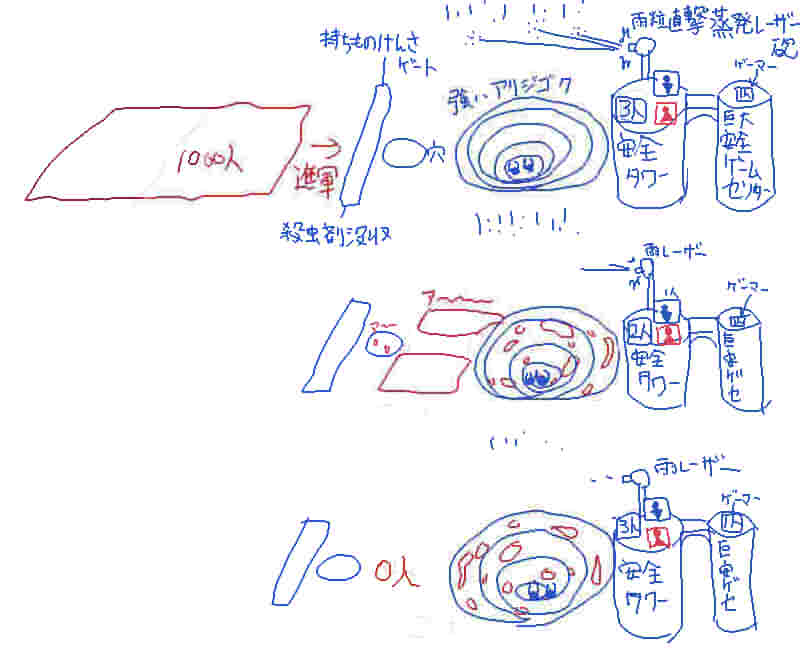 雨粒直撃蒸発レーザー砲
持ちものけんさゲート
ゲーマー
強いアリジゴク
3人
1000人
進軍
穴
安全タワー
巨大安全ゲームセンター
殺虫剤没収
雨レーザー
アー〜〜
マー
ゲーマー
1人
2人
安全タワー
巨安ゲセ
雨レーザー
ゲーマー
3人
1人
0人
安全タワー
巨安ゲセ